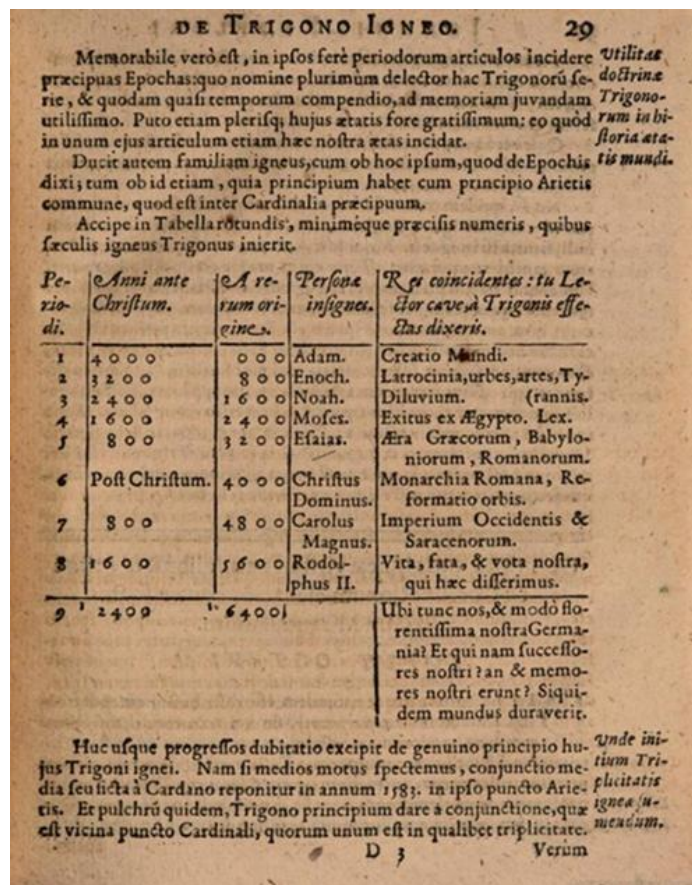 DE TRIGONO IGNEO. 29
Memorabile verò eſt, in ipſos ferè periodorum articulos incidere
præcipuas Epochas: quo nomine plurimùm delector hac Trigonorũ ſe-
rie, & quodam quaſi temporum compendio, ad memoriam juvandam
utiliſſimo. Puto etiam pleriſq; hujus ætatis fore gratiſſimum: eo quòd
in unum ejus articulum etiam hæc noſtra ætas incidat.
Utilitas
doctrinæ
Trigono-
rum in hi-
ſtoria æta-
tis mundi.
Ducit autem familiam igneus, cum ob hoc ipſum, quod de Epochis
dixi; tum ob id etiam, quia principium habet cum principio Arietis
commune, quod eſt inter Cardinalia præcipuum.
Accipe in Tabella rotundis, minimèque præciſis numeris, quibus
ſæculis igneus Trigonus inierit.
Pe- Anni ante A re- Perſonæ Res coincidentes: tu Le-
rio- Chriſtum. rum ori- inſignes. ctor cave, à Trigonis effe-
di. gine. ctas dixeris.
1 4000 000 Adam. Creatio Mundi.
2 3200 800 Enoch. Latrocinia, urbes, artes, Ty-
3 2400 1600 Noah. Diluvium. (rannis.
4 1600 2400 Moſes. Exitus ex Ægypto. Lex.
5 800 3200 Eſaias. Æra Græcorum, Babylo-
niorum, Romanorum.
6 Poſt Chriſtum. 4000 Chriſtus Monarchia Romana, Re-
Dominus. formatio orbis.
7 800 4800 Carolus Imperium Occidentis &
Magnus. Saracenorum.
8 1600 5600 Rodol- Vita, fata, & vota noſtra,
phus II. qui hæc diſſerimus.
9 2400 6400 Ubi tunc nos, & modò flo-
rentiſſima noſtra Germa-
nia? Et qui nam ſucceſſo-
res noſtri? an & memo-
res noſtri erunt? Siqui-
dem mundus duraverit.
Huc uſque progreſſos dubitatio excipit de genuino principio hu-
jus Trigoni ignei. Nam ſi medios motus ſpectemus, conjunctio me-
dia ſeu ficta à Cardano reponitur in annum 1583. in ipſo puncto Arie-
tis. Et pulchrũ quidem, Trigono principium dare à conjunctione, quæ
eſt vicina puncto Cardinali, quorum unum eſt in qualibet triplicitate.
Unde ini-
tium Tri-
plicitatis
igneæ ſu-
mendum.
D 3 Verùm